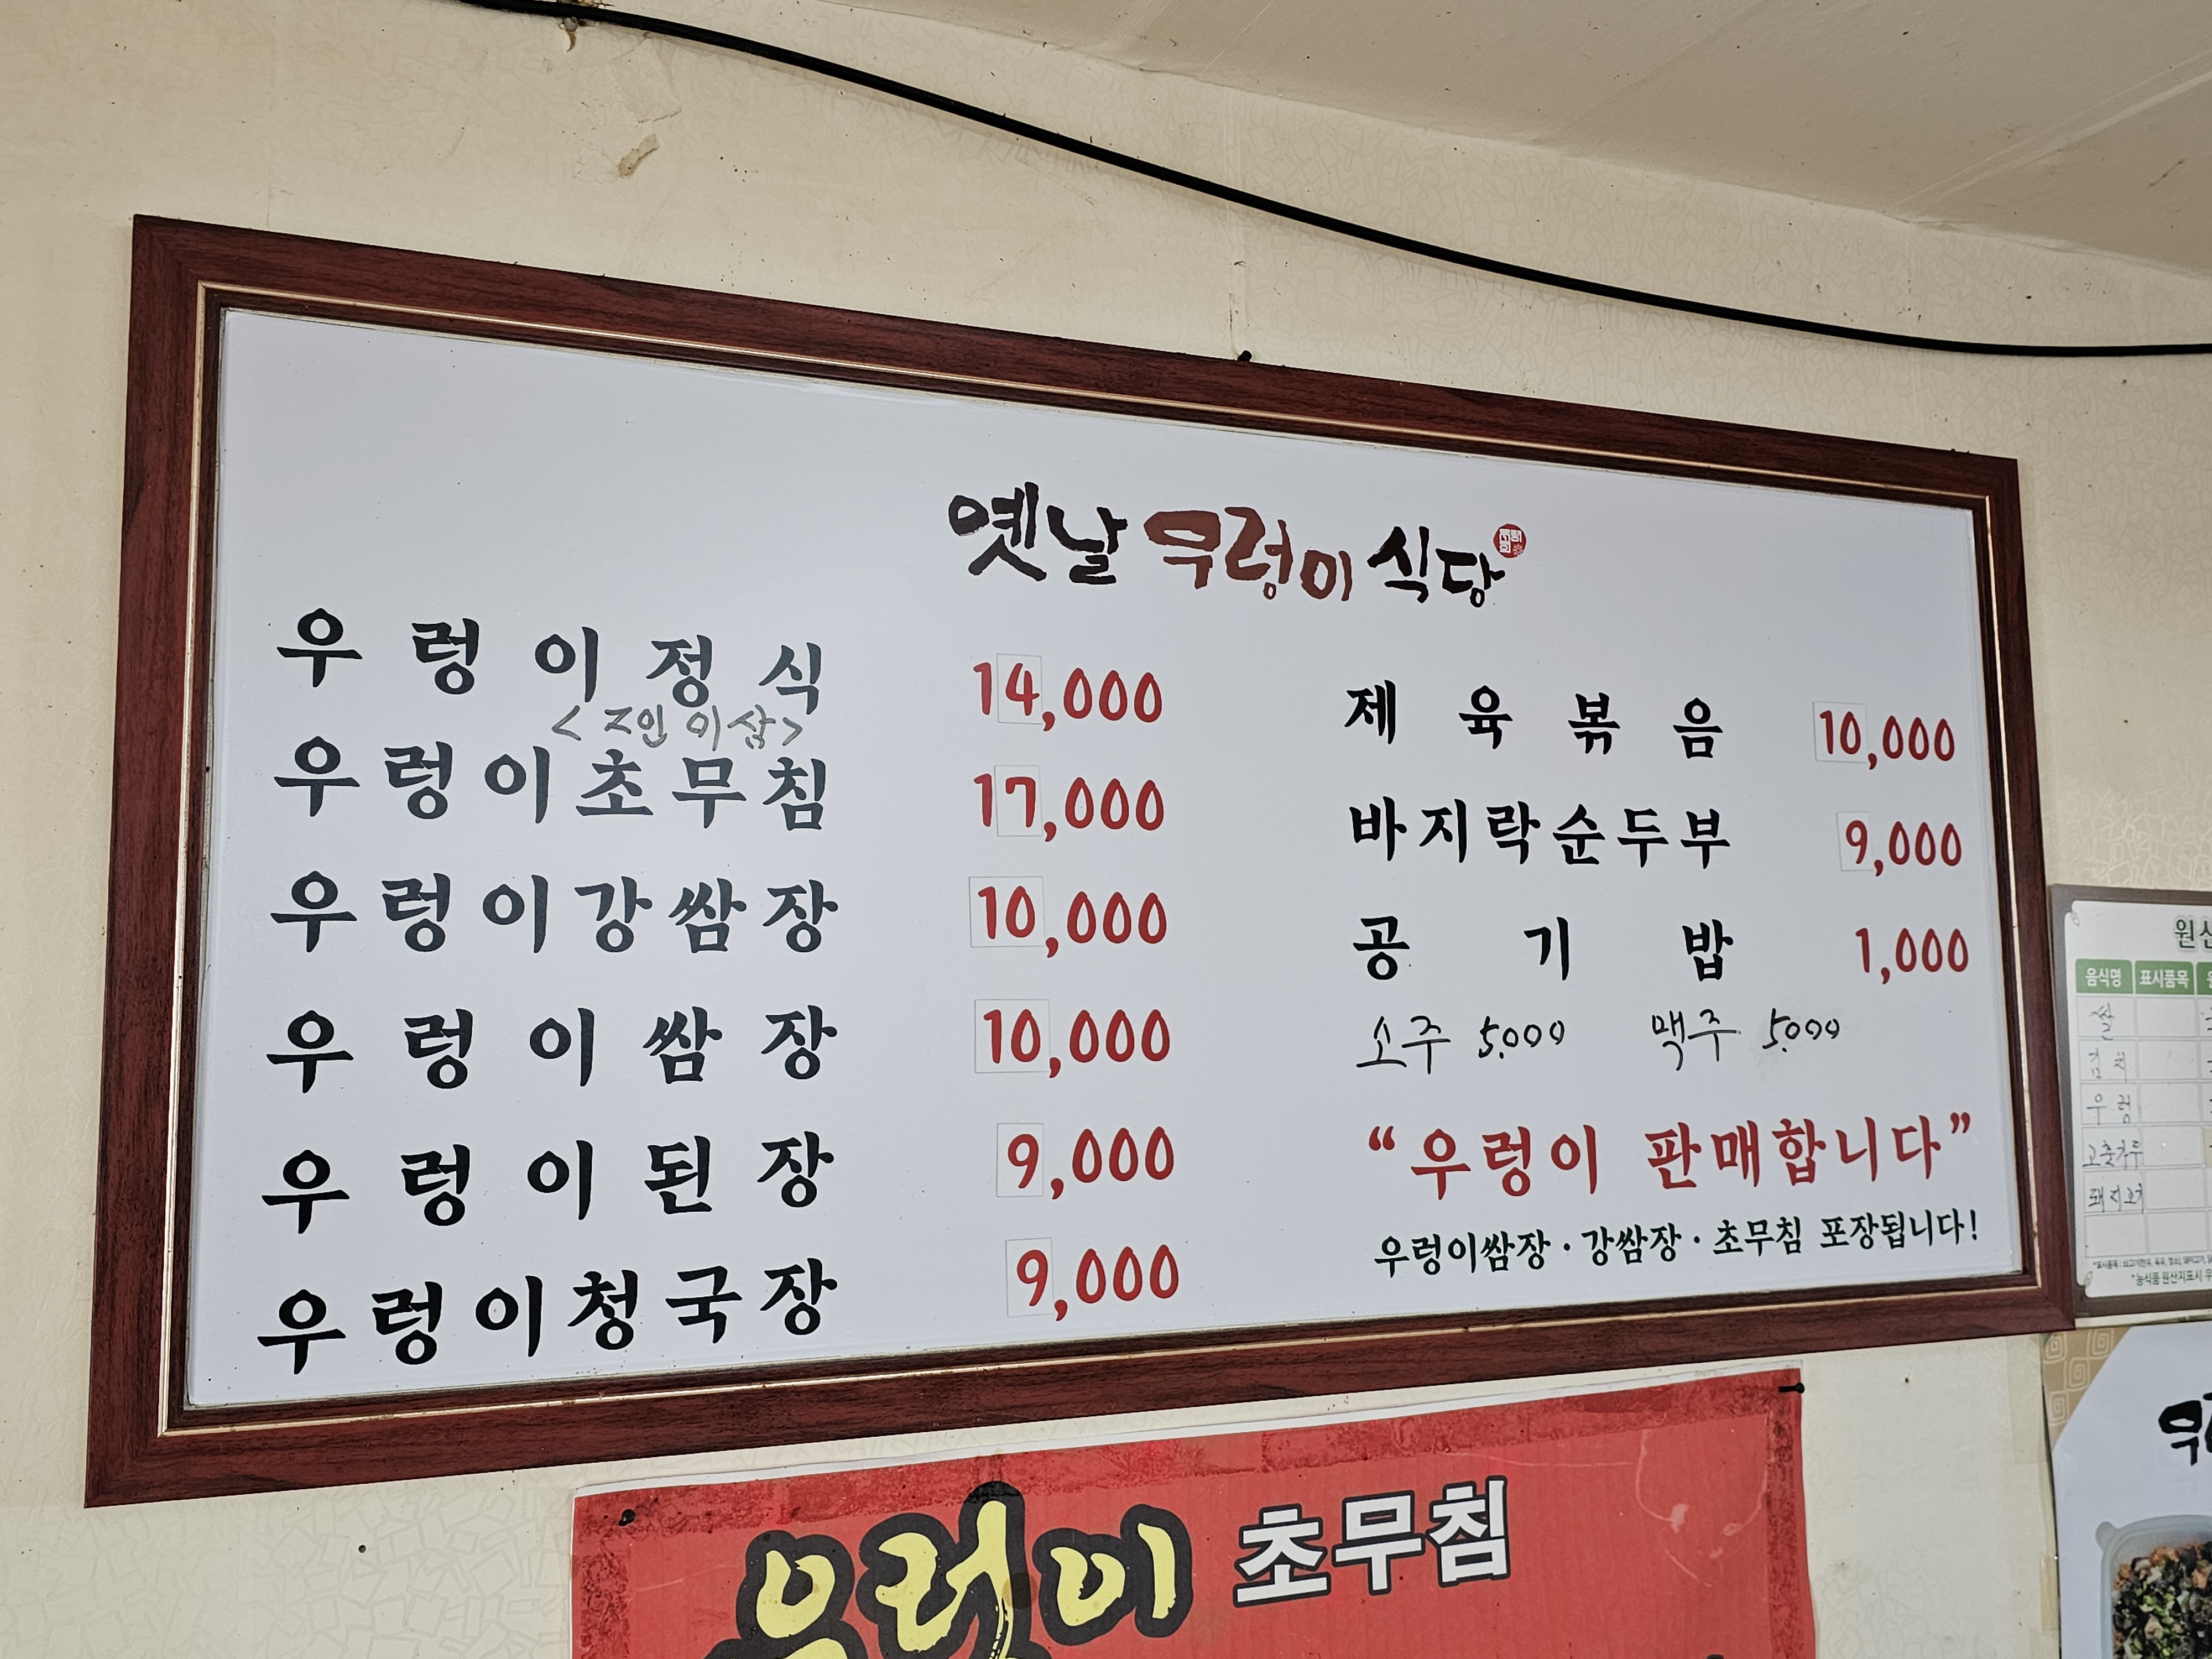 옛날 우렁이 식당
우렁이정식 14,000
<2인 이상>
우렁이초무침 17,000
우렁이강쌈장 10,000
우렁이쌈장 10,000
우렁이된장 9,000
우렁이청국장 9,000
제육볶음 10,000
바지락순두부 9,000
공기밥 1,000
소주 5,000 맥주 5,000
“우렁이 판매합니다”
우렁이쌈장·강쌈장·초무침 포장됩니다!
음식명 표시품목
쌀
김치
우렁
고춧가루
돼지고기
우렁이 초무침